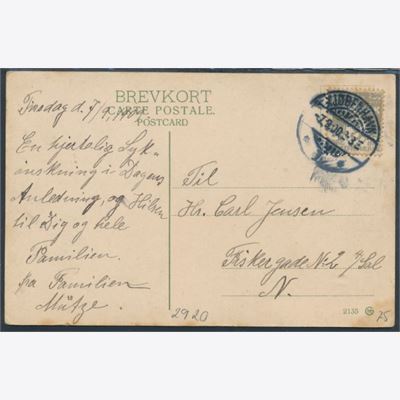 BREVKORT
CARTE POSTALE.
POSTCARD
Tirsdag d. 7/9, 1909.
En hjertelig Lyk-
ønskning i Dagens
Anledning, og Hilsen
til Dig og hele
Familien.
fra Familien
Mütze.
Til
Hr. Carl Jensen
Fiskergade No 2 Sal
N.
KJØBENHAVN
2920
2135
75